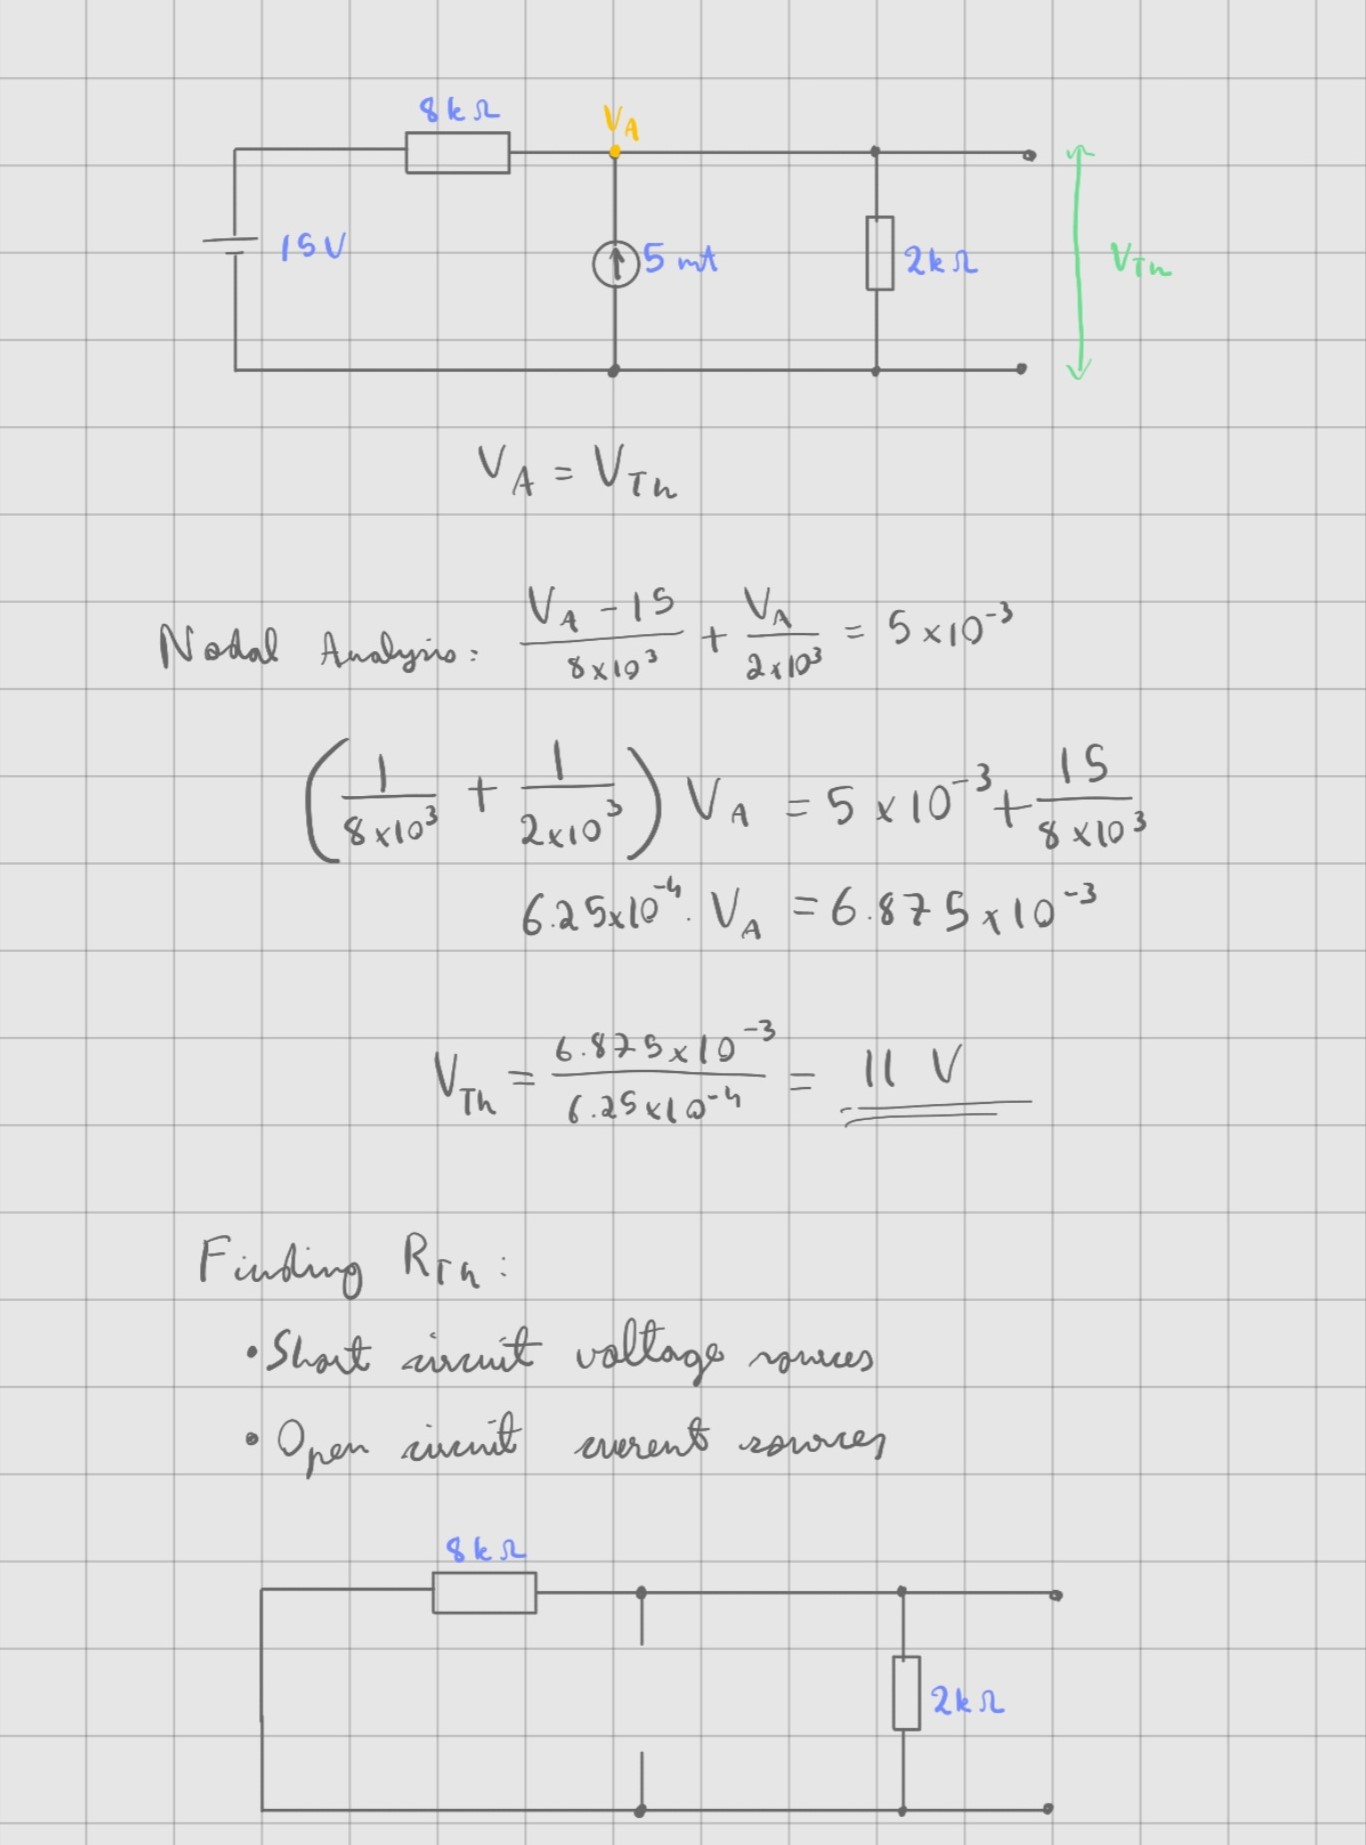 8kΩ
V_A
15V
5 mA
2kΩ
V_Th
V_A = V_Th
Nodal Analysis: (V_A - 15)/(8×10^3) + V_A/(2×10^3) = 5×10^-3
(1/(8×10^3) + 1/(2×10^3)) V_A = 5×10^-3 + 15/(8×10^3)
6.25×10^-4 · V_A = 6.875×10^-3
V_Th = (6.875×10^-3)/(6.25×10^-4) = 11 V
Finding R_Th:
• Short circuit voltage sources
• Open circuit current sources
8kΩ
2kΩ